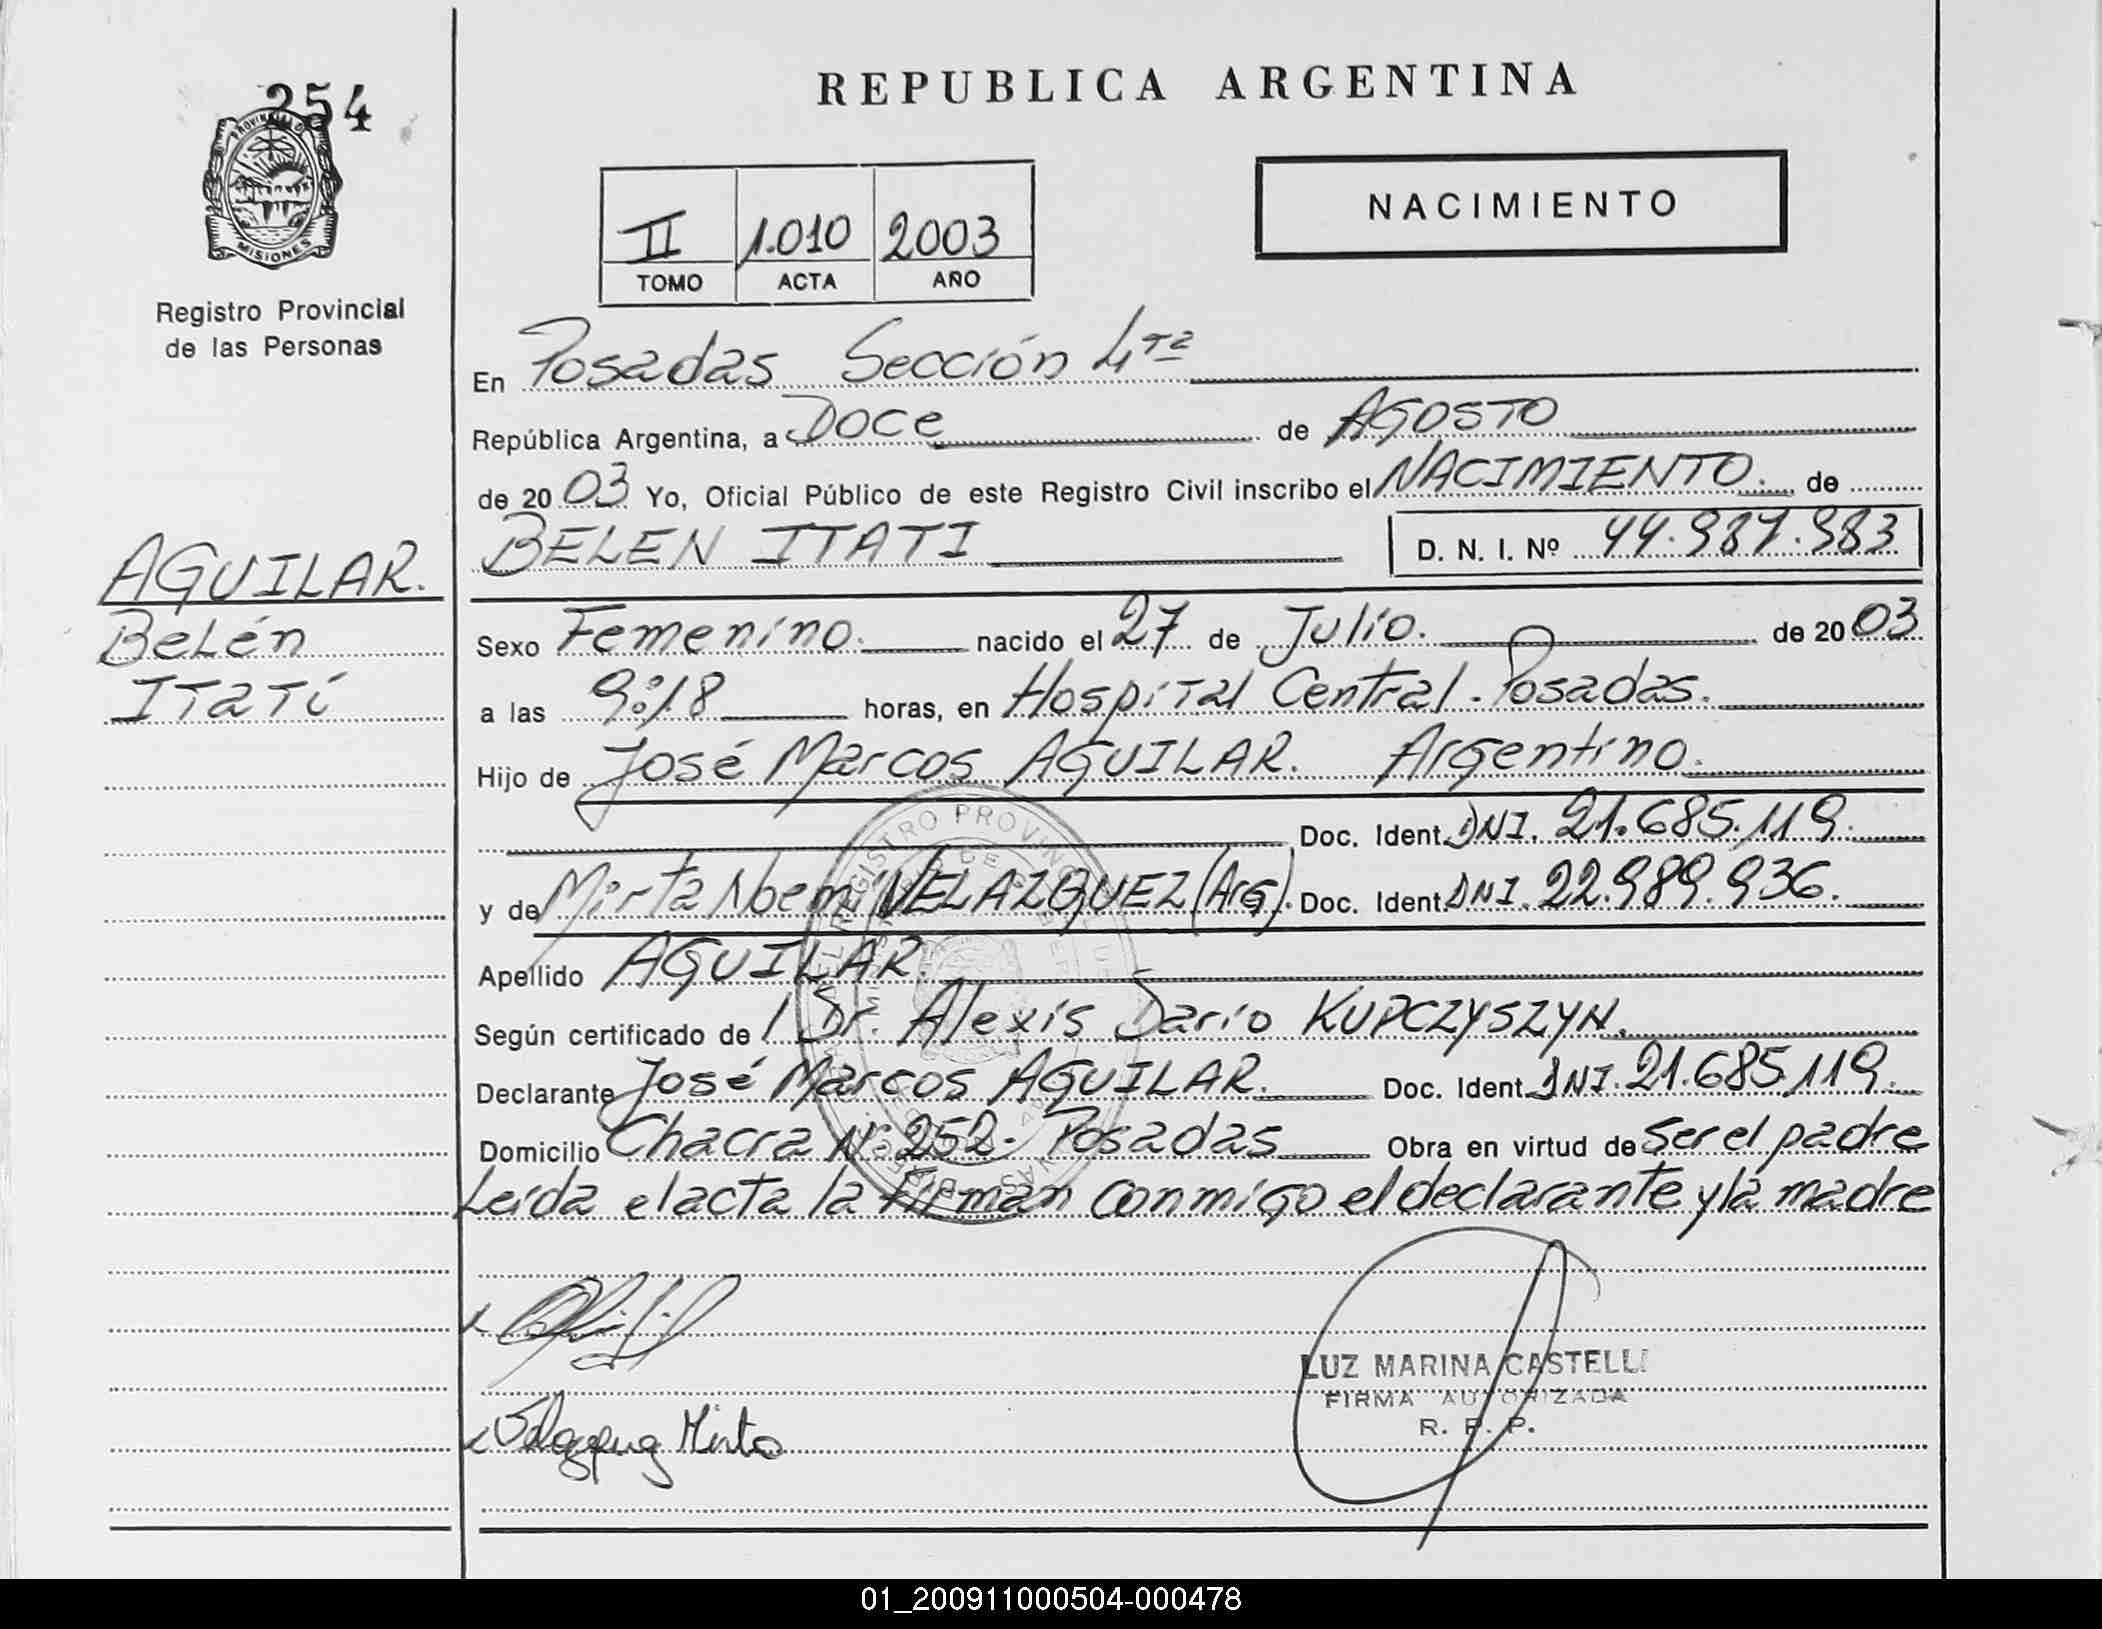 254
PROVINCIA D
MISIONES
Registro Provincial
de las Personas
REPUBLICA ARGENTINA
NACIMIENTO
II 1.010 2003
TOMO ACTA AÑO
En Posadas Sección 4ta
República Argentina, a Doce de AGOSTO
de 2003 Yo, Oficial Público de este Registro Civil inscribo el NACIMIENTO. de
BELEN ITATI D. N. I. Nº 44.987.983
AGUILAR.
Belén
Itatí
Sexo Femenino. nacido el 27 de Julio. de 2003
a las 9:18 horas, en Hospital Central. Posadas.
Hijo de José Marcos AGUILAR. Argentino.
Doc. Ident. DNI. 21.685.119.
y de Mirta Noemí VELAZQUEZ (Arg). Doc. Ident. DNI. 22.989.936.
Apellido AGUILAR.
Según certificado de Dr. Alexis Dario KUPCZYSZYN.
Declarante José Marcos AGUILAR. Doc. Ident. DNI. 21.685.119.
Domicilio Chacra Nº 252. Posadas Obra en virtud de Ser el padre
Leída el acta la firman conmigo el declarante y la madre
LUZ MARINA CASTELLI
FIRMA AUTORIZADA
R. P. P.
Velazquez Mirta
01_200911000504-000478